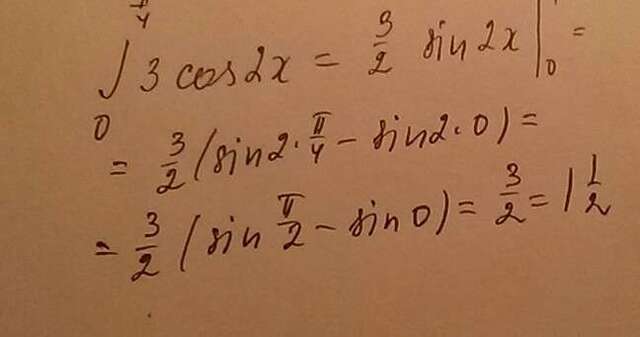 ∫₀^{π/4} 3 cos2x = 3/2 sin 2x |₀ =
= 3/2 (sin2·π/4 − sin2·0) =
= 3/2 (sin π/2 − sin 0) = 3/2 = 1 1/2